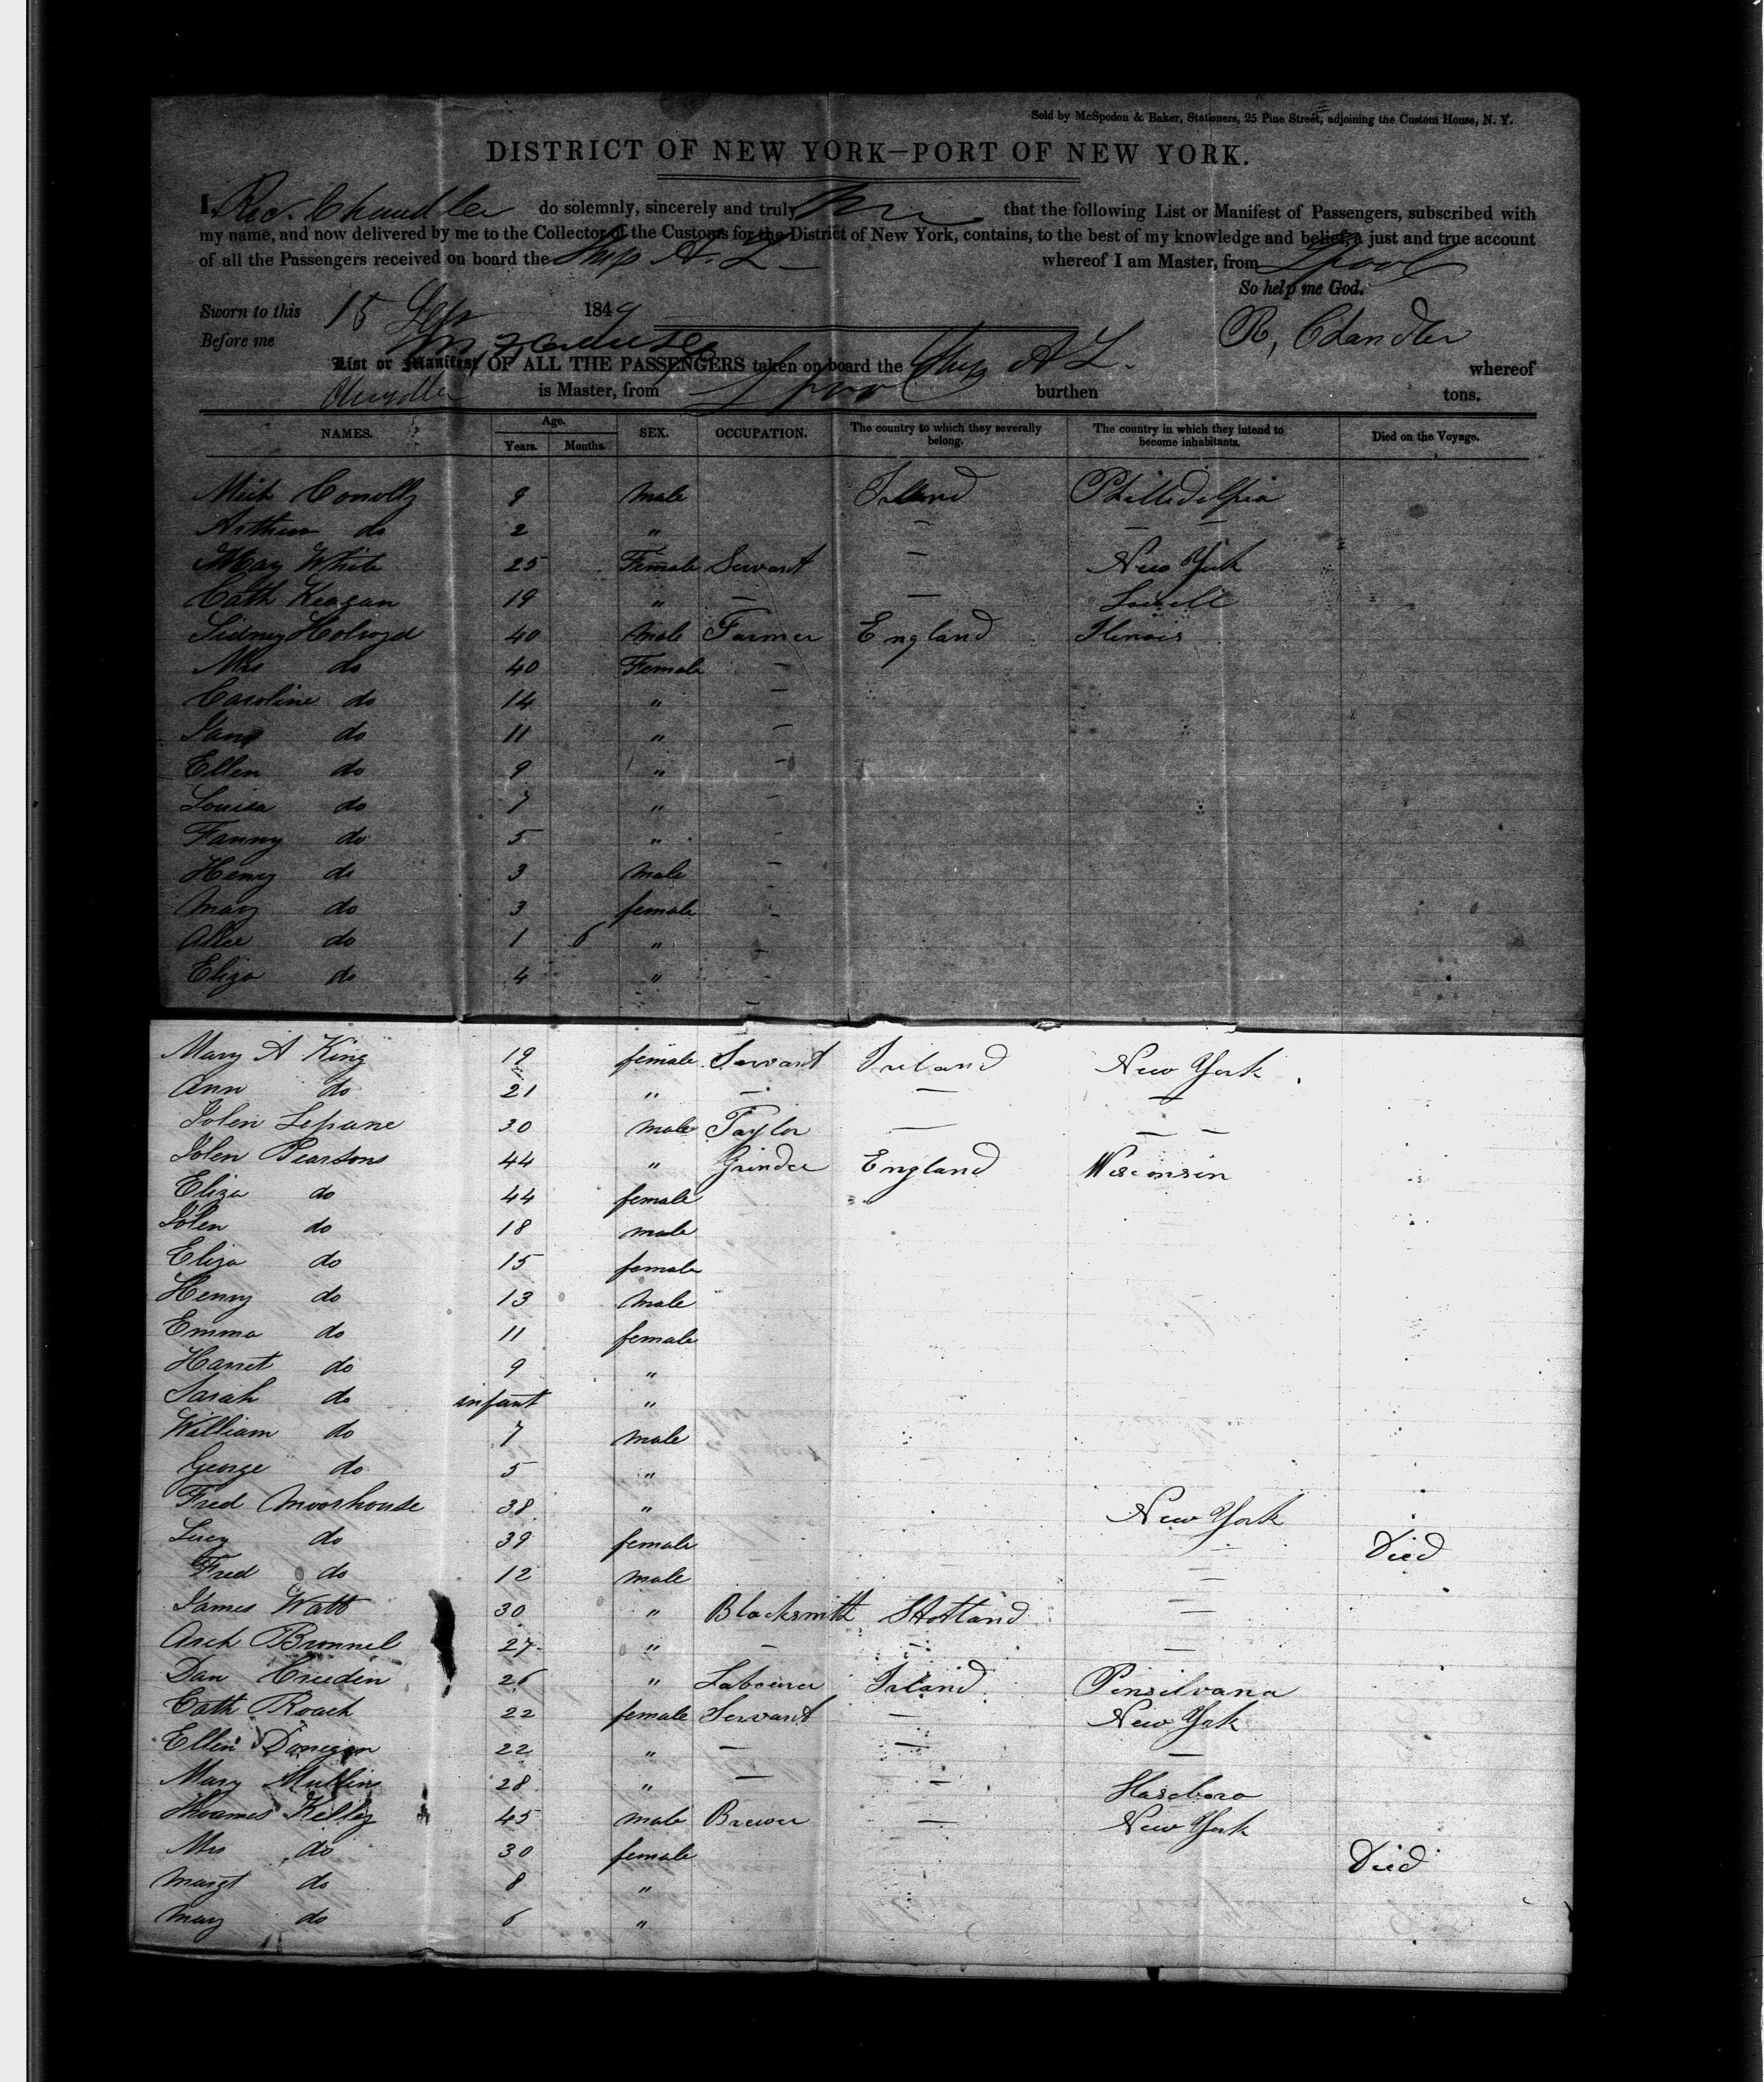 Sold by McSpedon & Baker, Stationers, 25 Pine Street, adjoining the Custom House, N. Y.
DISTRICT OF NEW YORK—PORT OF NEW YORK.
I, Ric. Chandler do solemnly, sincerely and truly that the following List or Manifest of Passengers, subscribed with
my name, and now delivered by me to the Collector of the Customs for the District of New York, contains, to the best of my knowledge and belief, a just and true account
of all the Passengers received on board the Ship A. Z whereof I am Master, from Lpool
So help me God.
Sworn to this 15 Sep 1849
Before me R, Chandler
List or Manifest OF ALL THE PASSENGERS taken on board the Ship A Z. whereof
Chandler is Master, from Lpool burthen tons.
NAMES. Age. Years. Months. SEX. OCCUPATION. The country to which they severally belong. The country in which they intend to become inhabitants. Died on the Voyage.
Mich Conolly 9 male Ireland Philledelphia
Arthur do 2 " — — —
Mary White 25 Female Servant — New York
Cath Keagan 19 " — — Lowell
Sidney Holroyd 40 male Farmer England Ilinois
Mrs do 40 Female —
Caroline do 14 " —
Jane do 11 " —
Ellen do 9 " —
Louisa do 7 " —
Fanny do 5 " —
Henry do 3 male —
Mary do 3 female -
Alice do 1 6 " -
Eliza do 4 " -
Mary A King 19 female Servant Ireland New York
Ann do 21 " — — —
John 30 male Taylor — — —
John Pearsons 44 " Grinder England Wisconsin
Eliza do 44 female
John do 18 male
Eliza do 15 female
Henry do 13 male
Emma do 11 female
Harret do 9 "
Sarah do infant "
William do 7 male
George do 5 "
Fred Moorhouse 38 " New York
Lucy do 39 female — Died
Fred do 12 male —
James Watt 30 " Blacksmith Stotland —
Arch Brunnel 27 " — — —
Dan Creeden 26 " Labourer Ireland Pensilvana
Cath Roach 22 female Servant — New York
Ellen Donegan 22 " — — —
Mary Mullins 28 " — — Haseboro
Thoames Kelly 45 male Brewer — New York
Mrs do 30 female Died
Margt do 8 "
Mary do 6 "